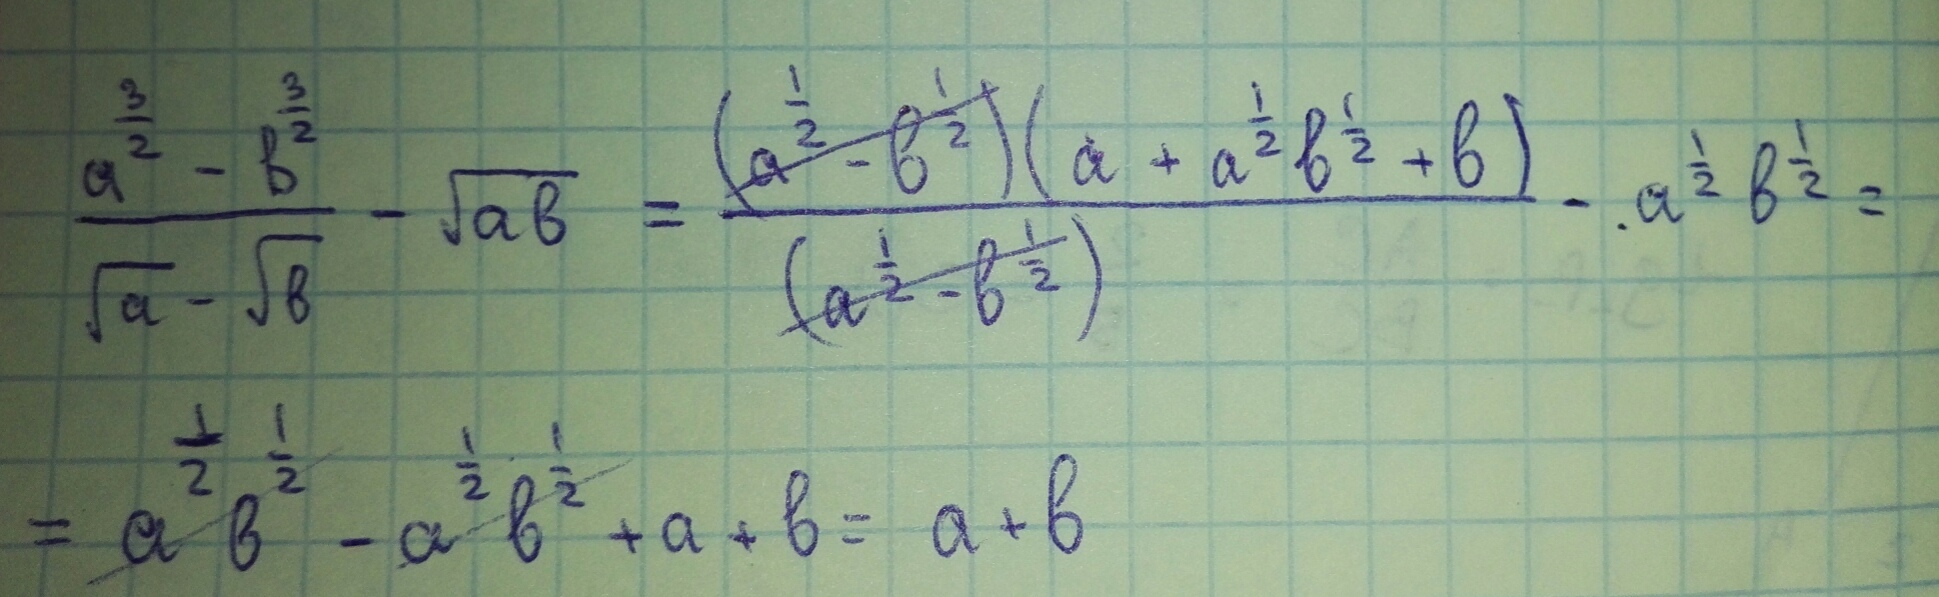 (a^(3/2) - b^(3/2))/(√a - √b) - √(ab) = ((a^(1/2) - b^(1/2))(a + a^(1/2) b^(1/2) + b))/((a^(1/2) - b^(1/2))) - . a^(1/2) b^(1/2) =
= a^(1/2) b^(1/2) - a^(1/2) b^(1/2) + a + b = a + b